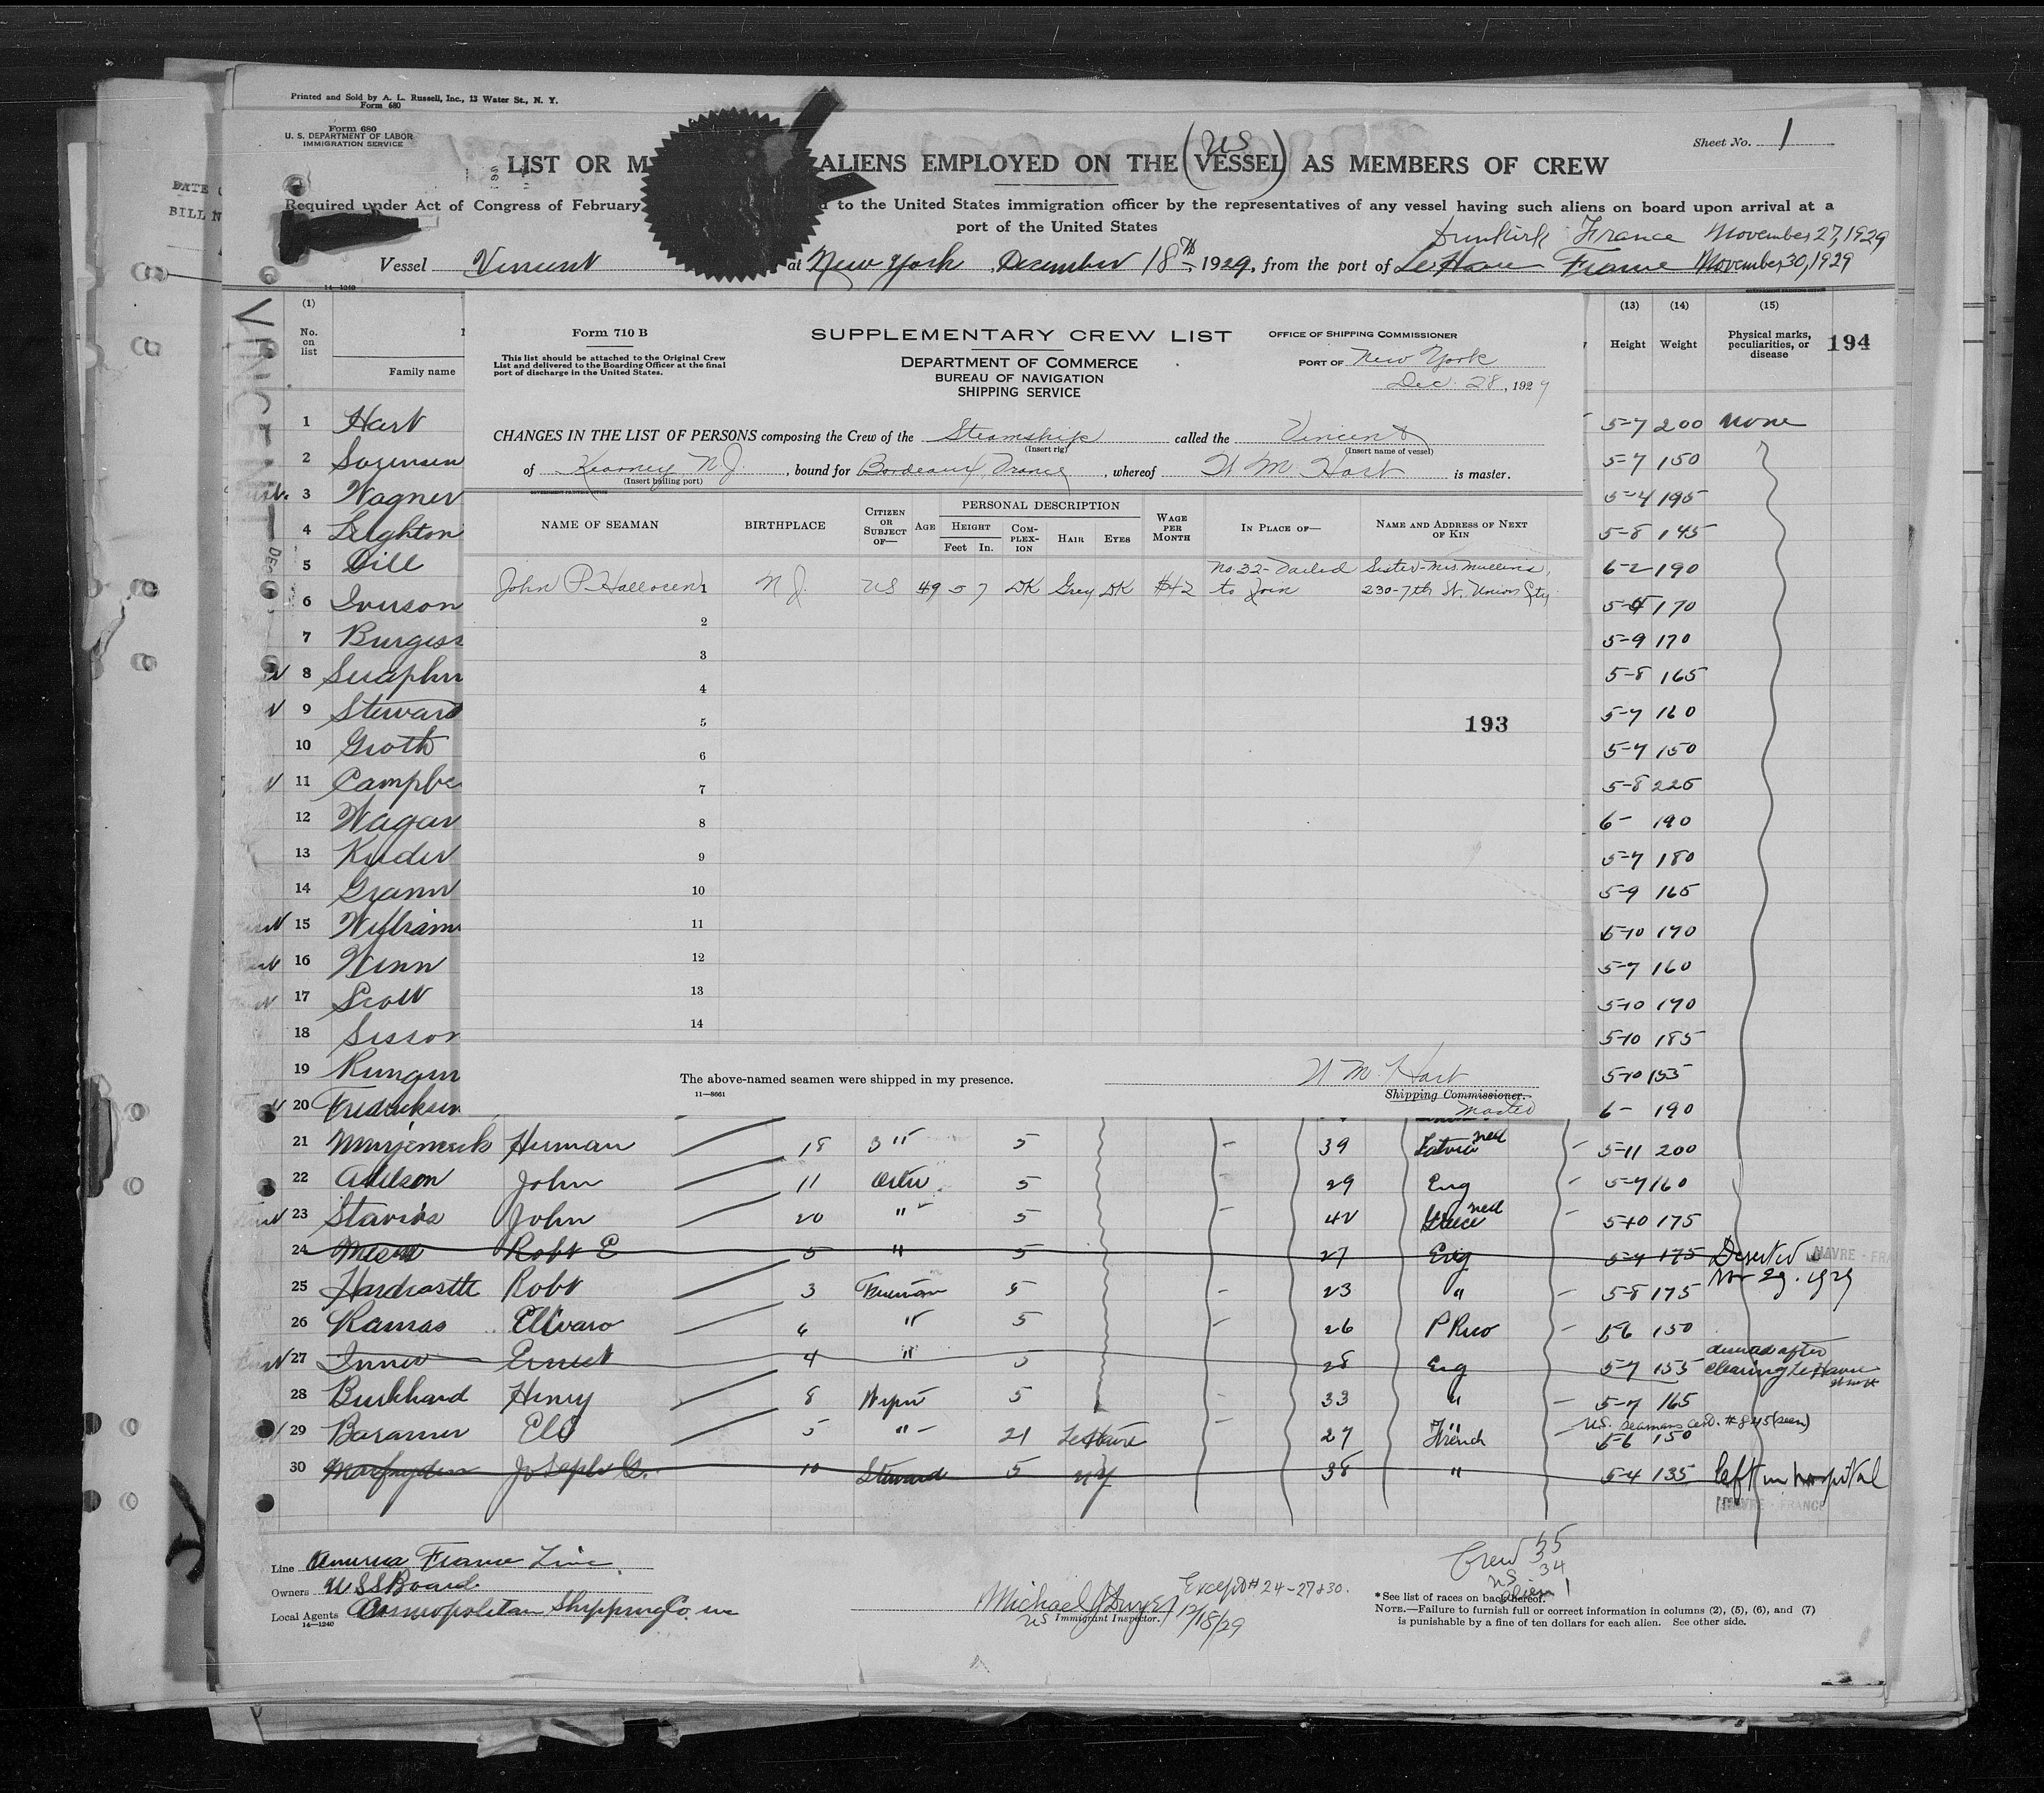 Printed and Sold by A. L. Russell, Inc., 13 Water St., N. Y.
Form 680
Form 680
U. S. DEPARTMENT OF LABOR
IMMIGRATION SERVICE
Sheet No. 1
US
LIST OR M ALIENS EMPLOYED ON THE (VESSEL) AS MEMBERS OF CREW
Required under Act of Congress of February d to the United States immigration officer by the representatives of any vessel having such aliens on board upon arrival at a
port of the United States
Dunkirk France November 27, 1929
Vessel Vincent at New York December 18th 1929, from the port of Le Havre France November 30, 1929
DATE
BILL N
14—1240
VINCENT
(1) (13) (14) (15)
No. on list
Family name
Height Weight Physical marks, peculiarities, or disease 194
Form 710 B
This list should be attached to the Original Crew
List and delivered to the Boarding Officer at the final
port of discharge in the United States.
SUPPLEMENTARY CREW LIST
DEPARTMENT OF COMMERCE
BUREAU OF NAVIGATION
SHIPPING SERVICE
OFFICE OF SHIPPING COMMISSIONER
PORT OF New York
Dec. 28, 1929
CHANGES IN THE LIST OF PERSONS composing the Crew of the Steamship called the Vincent
(Insert rig) (Insert name of vessel)
of Kearney N J. , bound for Bordeaux, France , whereof W M. Hart is master.
(Insert hailing port)
NAME OF SEAMAN BIRTHPLACE CITIZEN OR SUBJECT OF— AGE PERSONAL DESCRIPTION HEIGHT Feet In. COMPLEXION HAIR EYES WAGE PER MONTH IN PLACE OF— NAME AND ADDRESS OF NEXT OF KIN
No. 32-Failed Sister-Mrs. Mullins,
John P. Halloren 1 N J. US 49 5 7 DK Grey DK $42 to Join 230-7th St. Union City
2
3
4
5
193
6
7
8
9
10
11
12
13
14
The above-named seamen were shipped in my presence.
11—8661
W M. Hart
Shipping Commissioner.
Master
1 Hart 5-7 200 none
2 Sorensen 5-7 150
3 Wagner 5-4 195
4 Leighton 5-8 145
5 Dill 6-2 190
6 Iverson 170
7 Burgess 5-9 170
8 Seraphin 5-8 165
9 Steward 5-7 160
10 Groth 5-7 150
11 Campbe 5-8 225
12 Wagar 6- 190
13 Kuder 5-7 180
14 Grann 5-9 165
15 William 5-10 170
16 Winn 5-7 160
17 Scott 5-10 170
18 Sisson 5-10 185
19 5-10 155
20 Fredricksen 6- 190
21 Herman 18 3" 5 39 Latvia ned 5-11 200
22 Adelson John 11 Oiler 5 29 Eng 5-7 160
23 Stavros John 20 " 5 42 Greece ned 5-10 175
24 Robt E 5 " 5 27 Eng 5-7 175 Deserted HAVRE - FRA
Nov 29. 1929
25 Hardcastle Robt 3 Fireman 5 23 " 5-8 175
26 Ramos 6 " 5 26 P Rico 5-6 150
27 Ernest 4 " 5 28 Eng 5-7 155
after
clearing Le Havre
28 Burkhard Henry 8 Wiper 5 33 " 5-7 165
US. Seamans Cert. #845 (seen)
29 5 " 21 Le Havre 27 French 5-6 150
30 Joseph G. 10 Steward 5 NY 38 " 5-4 135 left in hospital
HAVRE - FRANCE
Line America France Line.
Owners U S S Board.
Local Agents Cosmopolitan Shipping Co inc
14—1240
Michael J Dwyer Except # 24-27 & 30.
US Immigrant Inspector. 12/18/29
Crew 35
US 34
alien 1
* See list of races on back hereof.
NOTE.—Failure to furnish full or correct information in columns (2), (5), (6), and (7)
is punishable by a fine of ten dollars for each alien. See other side.